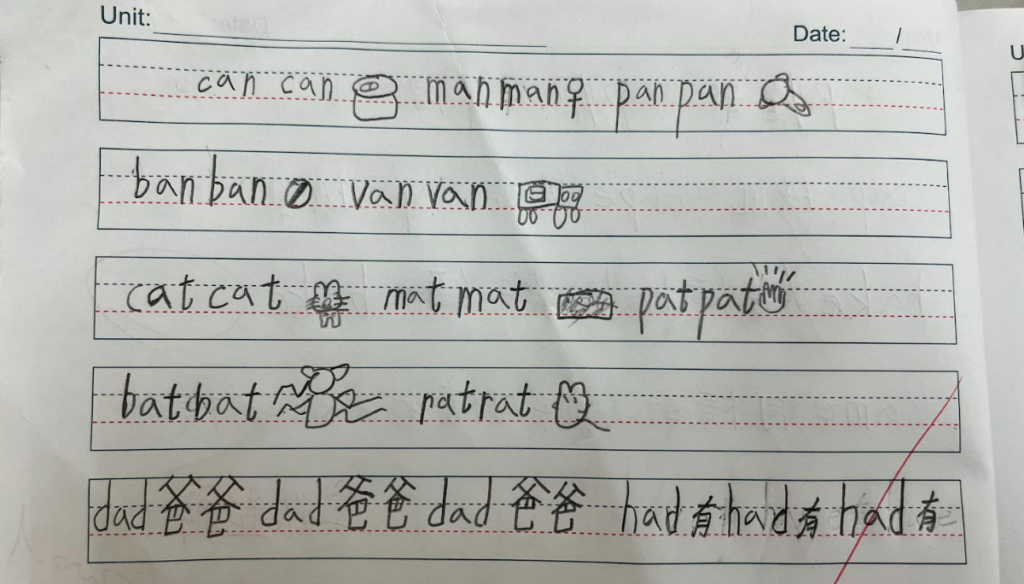 Unit:
Date: /
can can man man pan pan
ban ban van van
cat cat mat mat pat pat
bat bat rat rat
dad 爸爸 dad 爸爸 dad 爸爸 had 有 had 有 had 有
U